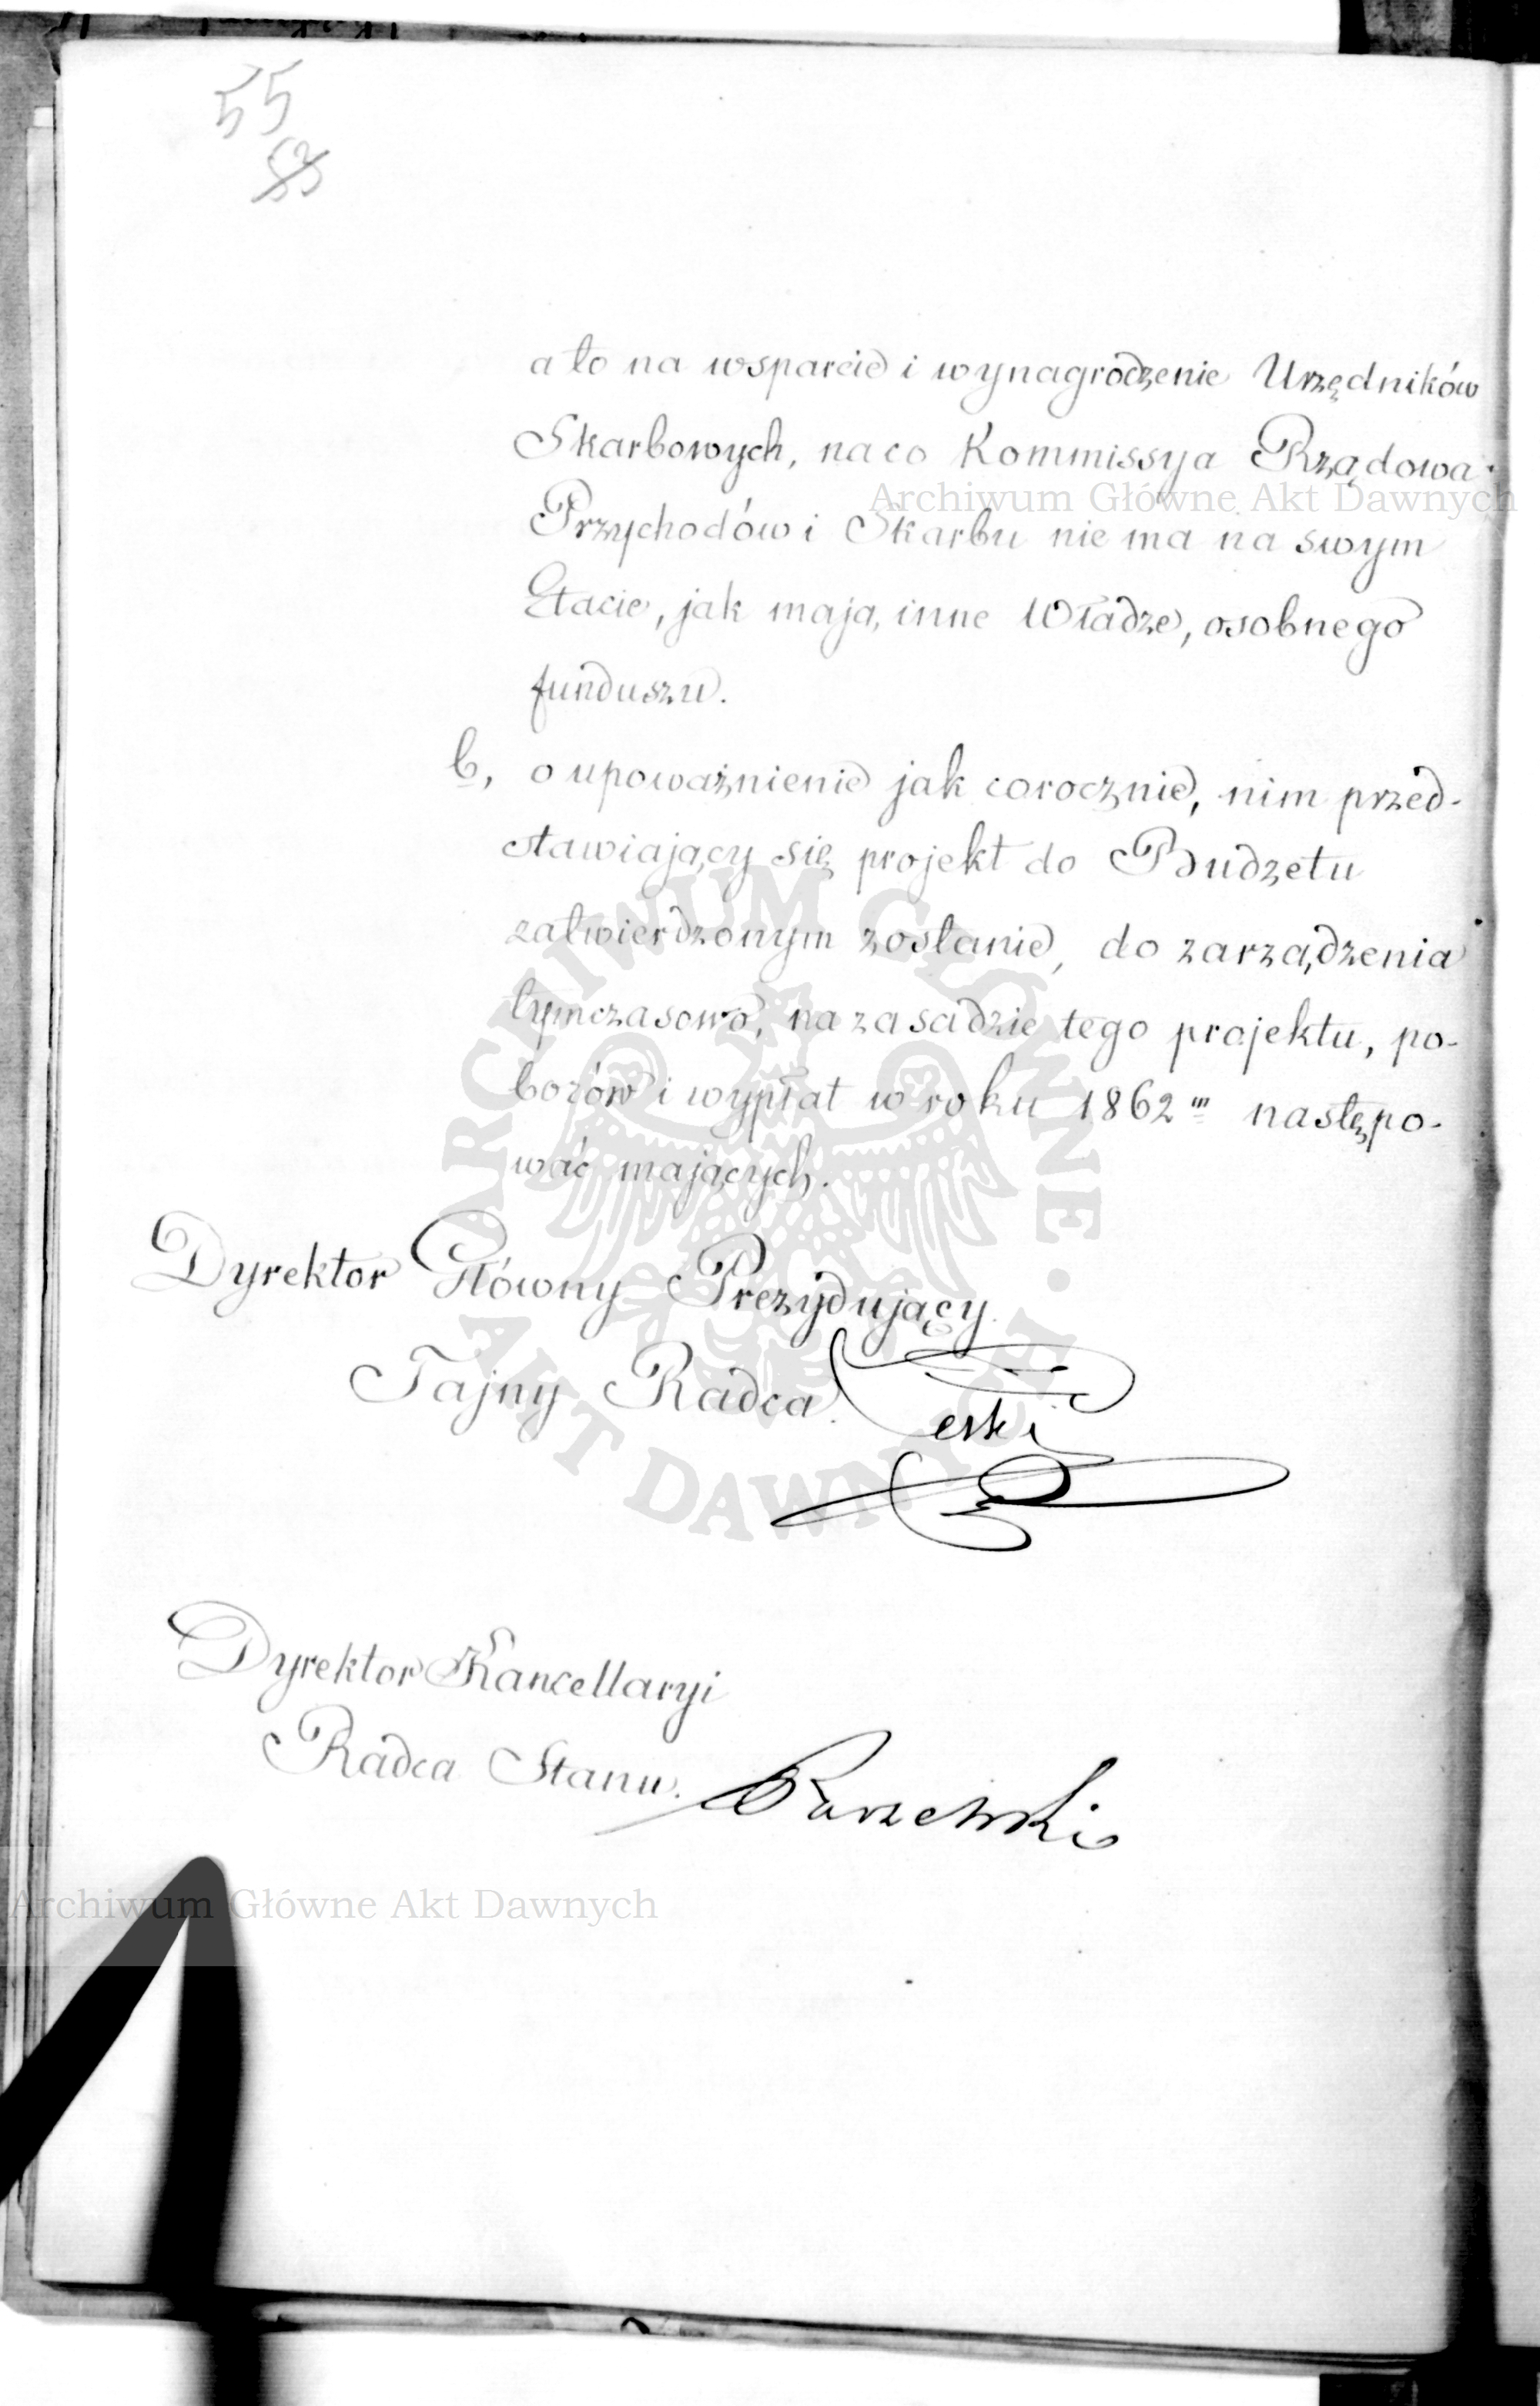 55
53
a to na wsparcie i wynagrodzenie Urzędników
Skarbowych, na co Kommissya Rządowa
Przychodów i Skarbu nie ma na swym
Etacie, jak mają inne Władze, osobnego
funduszu.
b, o upoważnienie jak corocznie, nim przed-
stawiający się projekt do Budżetu
zatwierdzonym zostanie, do zarządzenia
tymczasowo, na zasadzie tego projektu, po-
borów i wypłat w roku 1862m następo-
wać mających.
Dyrektor Główny Prezydujący
Tajny Radca. Łęski
Dyrektor Kancellaryi
Radca Stanu.
Archiwum Główne Akt Dawnych
ARCHIWUM GŁÓWNE AKT DAWNYCH
Archiwum Główne Akt Dawnych